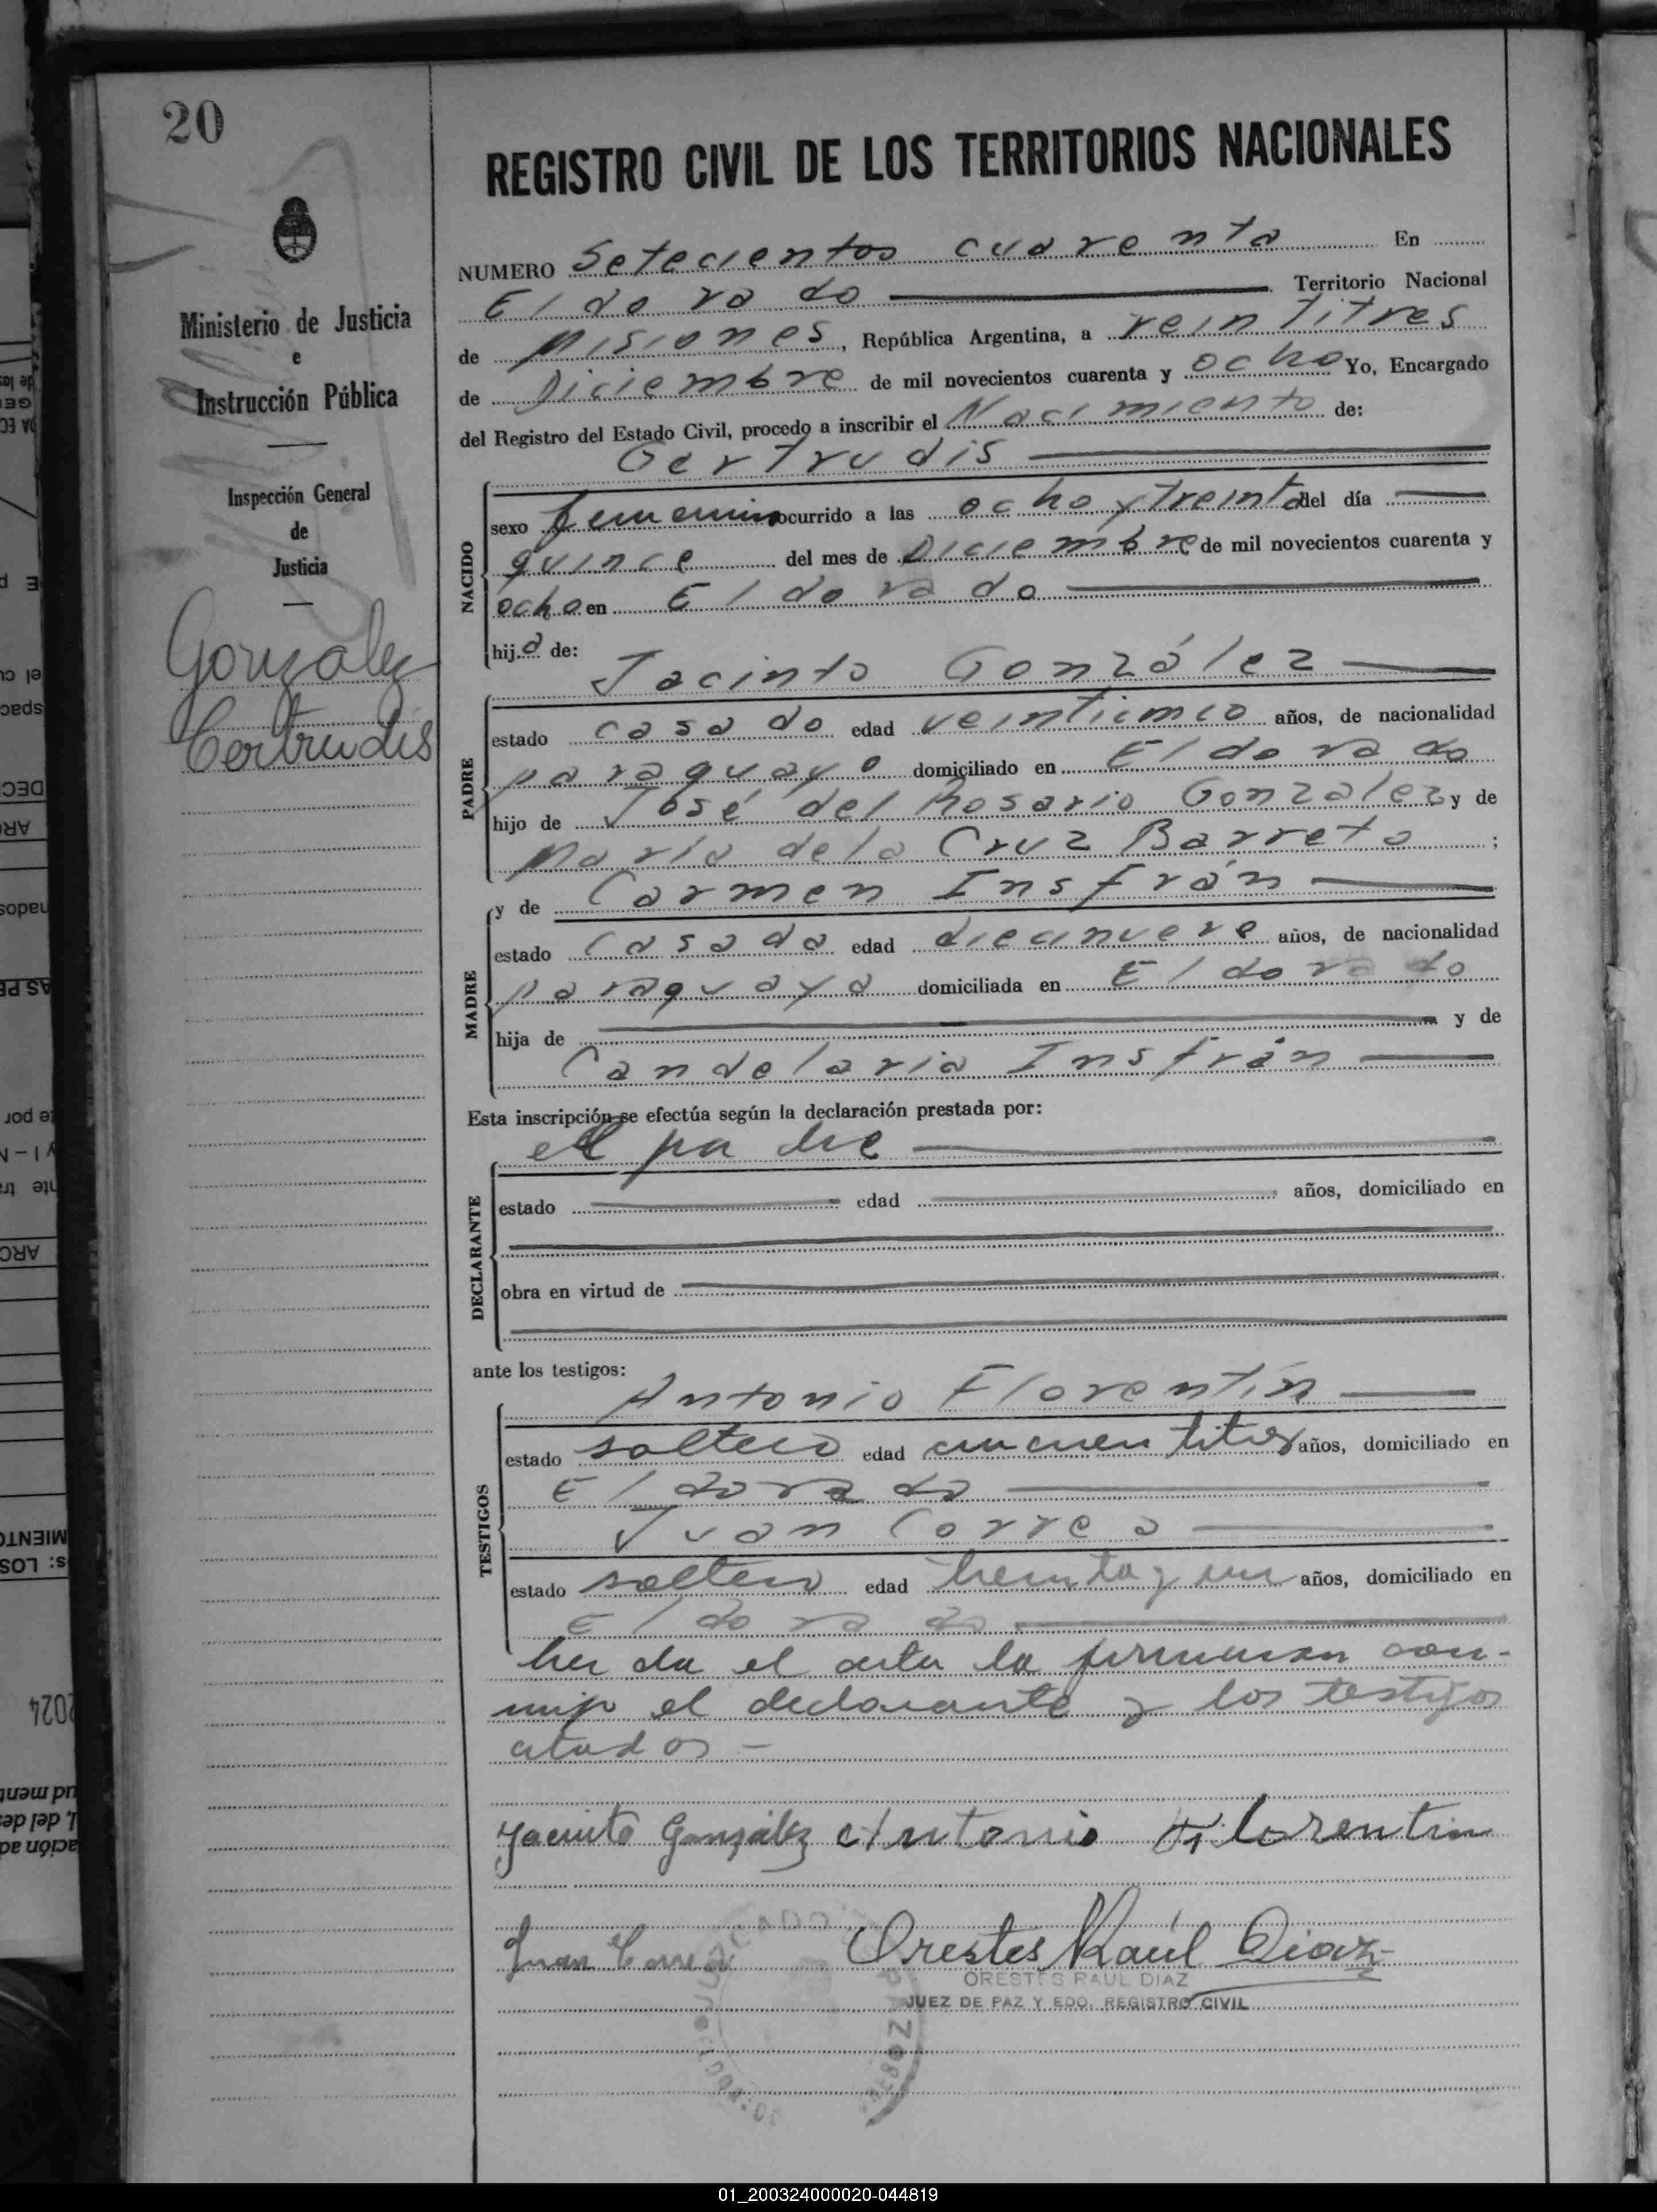 20
REGISTRO CIVIL DE LOS TERRITORIOS NACIONALES
Ministerio de Justicia
e
Instrucción Pública
Inspección General
de
Justicia
Gonzalez
Gertrudis
NUMERO Setecientos cuarenta En
Eldorado Territorio Nacional
de Misiones, República Argentina, a veintitres
de Diciembre de mil novecientos cuarenta y ocho Yo, Encargado
del Registro del Estado Civil, procedo a inscribir el Nacimiento de:
Gertrudis
NACIDO
sexo femenino ocurrido a las ocho y treinta del día
quince del mes de Diciembre de mil novecientos cuarenta y
ocho en Eldorado
hija de:
Jacinto González
PADRE
estado casado edad veinticinco años, de nacionalidad
paraguayo domiciliado en Eldorado
hijo de José del Rosario Gonzalez y de
María de la Cruz Barreto ;
y de Carmen Insfrán
MADRE
estado casada edad diecinueve años, de nacionalidad
paraguaya domiciliada en Eldorado
hija de y de
Candelaria Insfrán
Esta inscripción se efectúa según la declaración prestada por:
el padre
DECLARANTE
estado edad años, domiciliado en
obra en virtud de
ante los testigos:
Antonio Florentín
TESTIGOS
estado soltero edad cincuentitres años, domiciliado en
Eldorado
Juan Correa
estado soltero edad treinta y un años, domiciliado en
Eldorado
leida el acta la firmaran con-
migo el declarante y los testigos
citados -
Jacinto González Antonio Florentin
Juan Correa Orestes Raúl Diaz
ORESTES RAUL DIAZ
JUEZ DE PAZ Y EDO. REGISTRO CIVIL
01_200324000020-044819